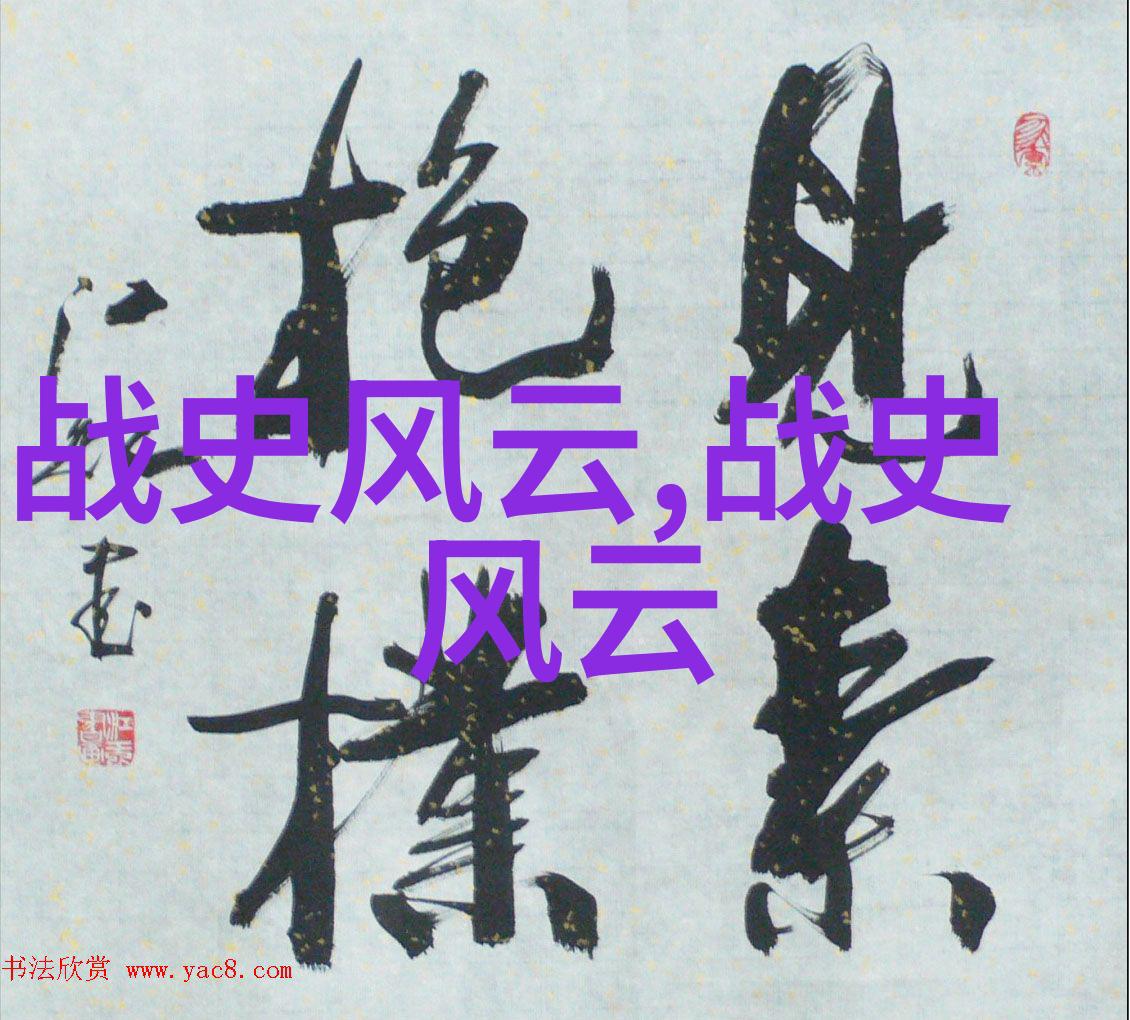 見素
抱樸
战史风云,战史
风云
书法欣赏 www.yac8.com